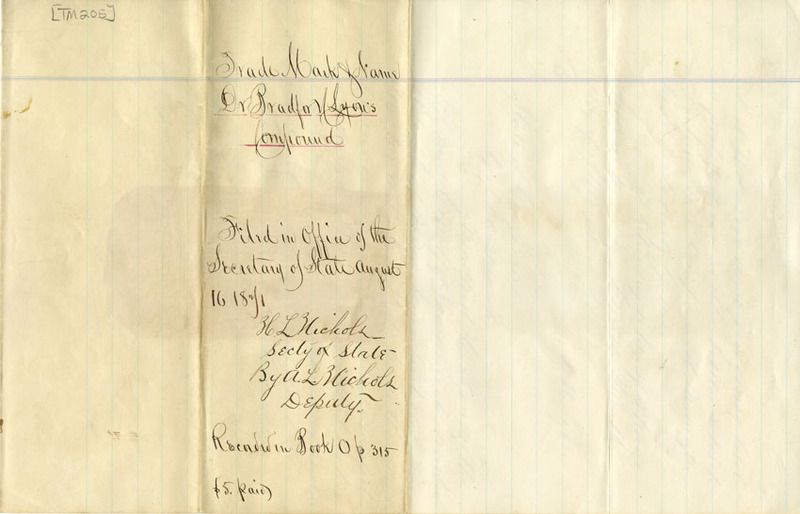 [TM205]
Trade Mark & Name
Dr Bradford Lyon's
Compound
Filed in Office of the
Secretary of State August
16 1871
H L Nichols
Secty of State
By A. L. Nichols
Deputy.
Recorded in Book O p 315
$5. paid